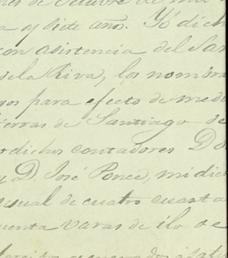 de Octubre de mi
a y siete años. Yo dich
con asistencia del Sar
de la Riva, los nombra
os para efecto de medi
ierras de Santiago de
dichos contadores D
y D José Ponce, mi dic
usual de cuatro cuarta
uenta varas de ilo de